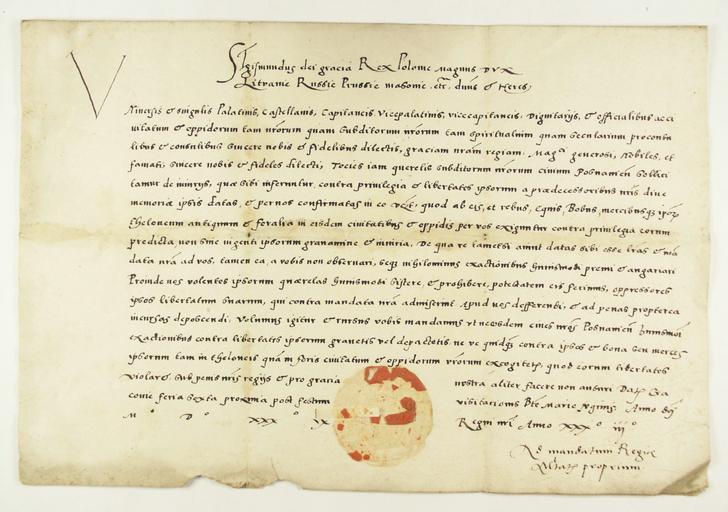 Sigismundus dei gracia Rex Polonie magnus Dux
Lituanie Russie Prussie masovie etc. dnus et Heres,
Vniversis et singulis Palatinis, Castellanis, Capitaneis Vicepalatinis, vicecapitaneis, Dignitarijs, et officialibus aci
vitatum et oppidorum tam nrorum quam subditorum nrorum tam spiritualium quam secularium procon
libus et consulibus sincere nobis et fidelibus dilectis, graciam nram regiam. Mag. generosi, Nobiles, et
famati, sincere nobis et fideles dilecti, Tocies iam querelis subditorum nrorum civium Posnanien sollici
tamur de iniurijs, quae sibi inferuntur, contra privilegia et libertates ipsorum a praedecessoribus nris dive
memoriae ipsis datas, et per nos confirmatas quod ab eis, et rebus, Equis, Bobus, mercibusq ipor
theloneum antiquum et foralia in eisdem civitatibus et oppidis per vos exiguntur contra privilegia eorum
predicta, non sine ingenti ipsorum gravamine et iniuria, De qua re tametsi aiunt datas sibi esse lras et ma
data nra ad vos, tamen ea, a vobis non observari, seq nihilominus exactionibus huiusmodi premi et angariari
Proinde nos volentes ipsorum quaerelas huiusmodi sistere, et prohibere, potestatem eis fecimus, oppressores
ipsos libertatum suarum, qui contra mandata nra admiserint apud nos defferendi, et ad penas propterea
incursas deposcendi. Volumus igitur et rursus vobis mandamus vt neusdem cives nros Posnanien huiusmoi
exactionibus contra libertates ipsorum gravetis vel depactetis, ne ve quidq contra ipsos et bona seu merces
ipsorum tam in theloneis quam in foris civitatum et oppidorum vrorum excogitetis, quod eorum libertates
violaret, sub penis nris regijs et pro gracia nostra aliter facere non ausuri Dat Cra
covie feria sexta proxima post festum visitacionis Bte Marie Virginis Anno dni
M o D o XXX o IX Regni nri Anno XXX o iij o
Ad mandatum Regie
Mtatis proprium